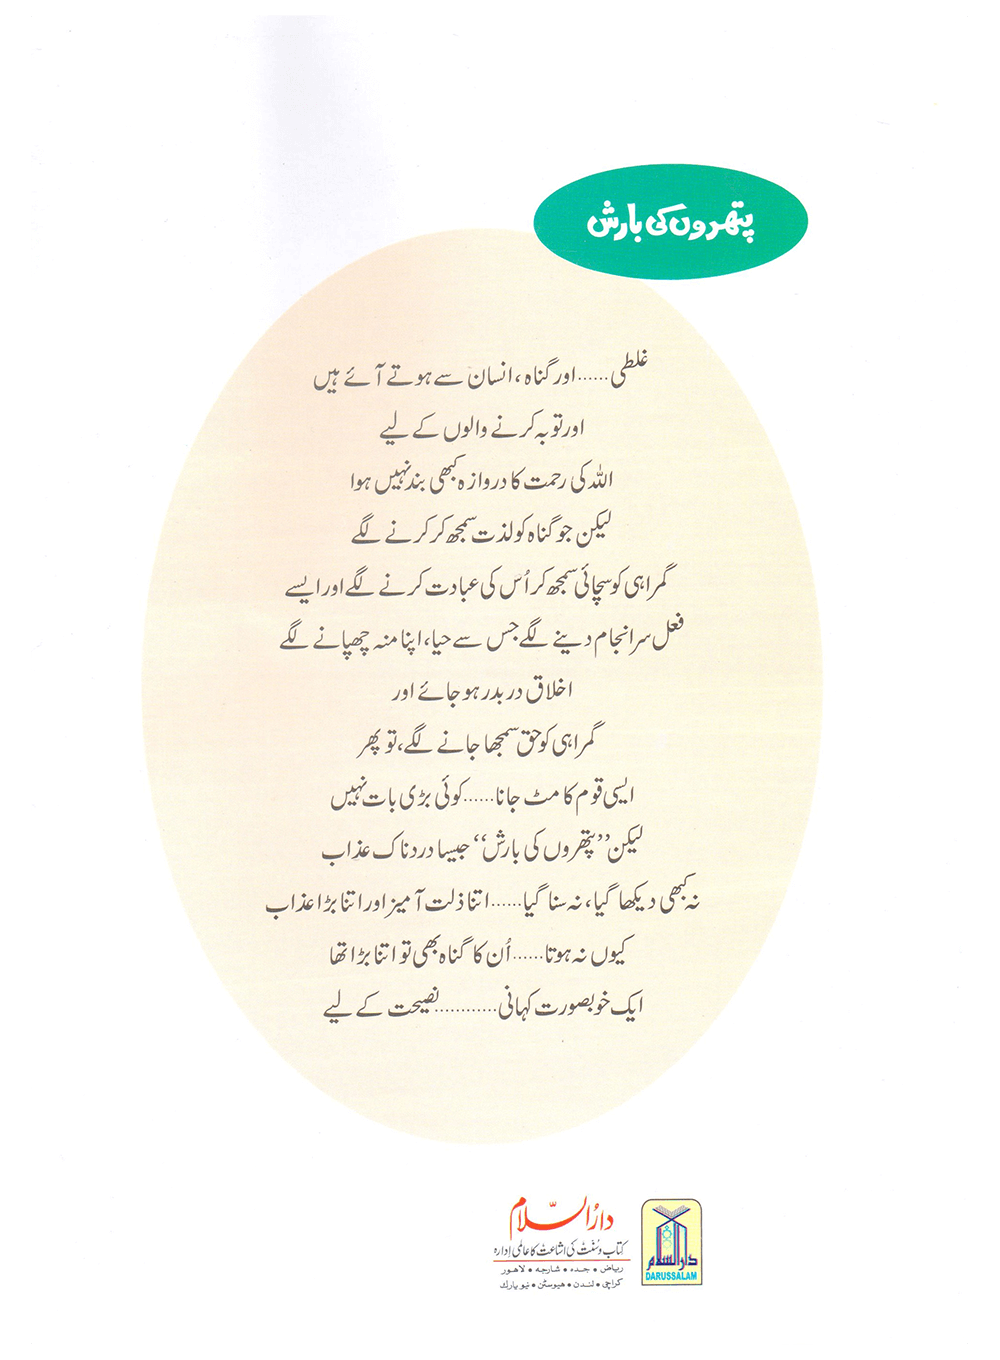 پتھروں کی بارش
غلطی......اور گناہ، انسان سے ہوتے آئے ہیں
اور توبہ کرنے والوں کے لیے
اللہ کی رحمت کا دروازہ کبھی بند نہیں ہوا
لیکن جو گناہ کو لذت سمجھ کر کرنے لگے
گمراہی کو سچائی سمجھ کر اُس کی عبادت کرنے لگے اور ایسے
فعل سرانجام دینے لگے جس سے حیا، اپنا منہ چھپانے لگے
اخلاق دربدر ہو جائے اور
گمراہی کو حق سمجھا جانے لگے، تو پھر
ایسی قوم کا مٹ جانا......کوئی بڑی بات نہیں
لیکن ’’پتھروں کی بارش‘‘ جیسا دردناک عذاب
نہ کبھی دیکھا گیا، نہ سنا گیا......اتنا ذلت آمیز اور اتنا بڑا عذاب
کیوں نہ ہوتا......اُن کا گناہ بھی تو اتنا بڑا تھا
ایک خوبصورت کہانی............نصیحت کے لیے
دارُالسّلام
کتاب و سنت کی اشاعت کا عالمی ادارہ
ریاض • جدہ • شارجہ • لاہور
کراچی • لندن • ھیوسٹن • نیو یارک
دارالسلام
DARUSSALAM